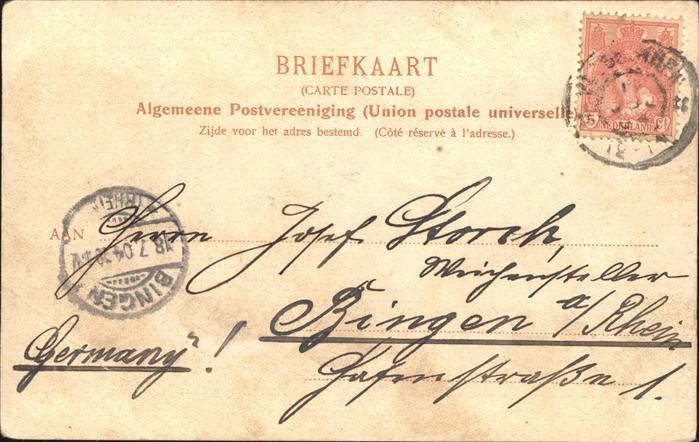 BRIEFKAART
(CARTE POSTALE)
Algemeene Postvereeniging (Union postale universelle)
Zijde voor het adres bestemd. (Côté réservé à l'adresse.)
5 NEDERLAND ct
AAN Herrn Josef Storck,
Weichensteller
Bingen a/Rhein
Hafenstraße 1.
Germany"!
BINGEN
18.7.04
(RHEIN)